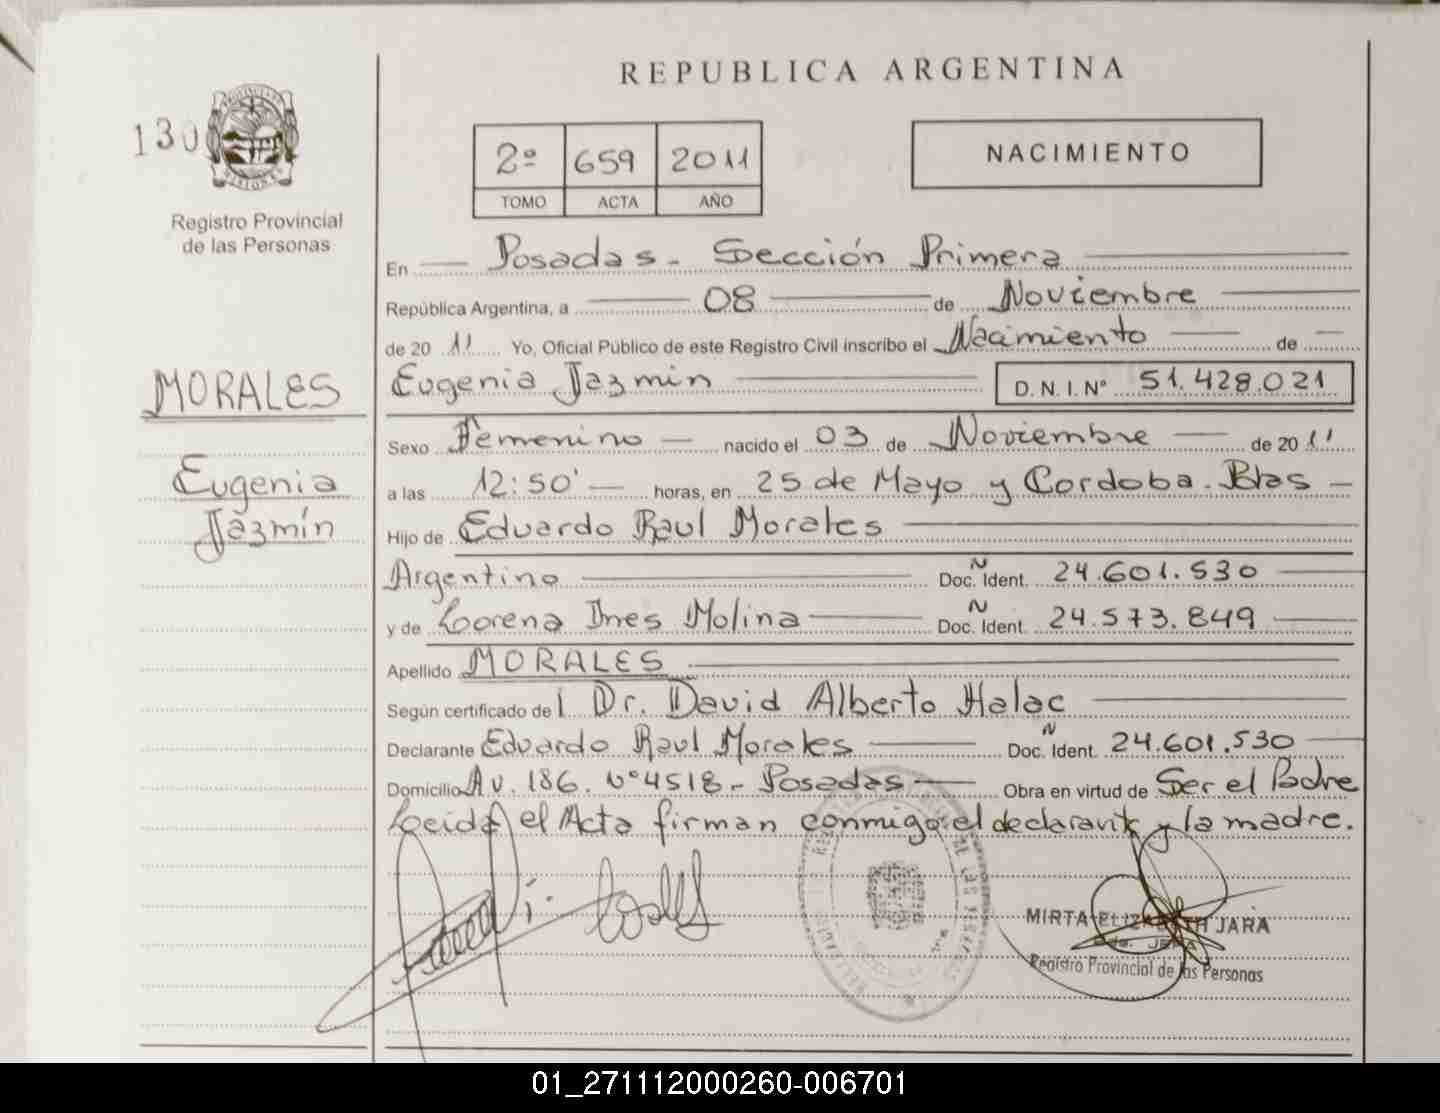 REPUBLICA ARGENTINA
130
2º 659 2011
TOMO ACTA AÑO
NACIMIENTO
Registro Provincial
de las Personas
En Posadas - Sección Primera
República Argentina, a 08 de Noviembre
de 20 11 Yo, Oficial Público de este Registro Civil inscribo el Nacimiento de
MORALES
Eugenia Jazmín
Eugenia Jazmin D.N.I.Nº 51.428.021
Sexo Femenino nacido el 03 de Noviembre de 20 11
a las 12:50' horas, en 25 de Mayo y Cordoba. Pdas
Hijo de Eduardo Raul Morales
Argentino Doc. Ident. 24.601.530
y de Lorena Ines Molina Doc. Ident. 24.573.849
Apellido MORALES
Según certificado del Dr. David Alberto Halac
Declarante Eduardo Raul Morales Doc. Ident. 24.601.530
Domicilio Av. 186. Nº 4518 - Posadas Obra en virtud de Ser el Padre
Leida el Acta firman conmigo el declarante y la madre.
MIRTA ELIZABETH JARA
Registro Provincial de las Personas
01_271112000260-006701